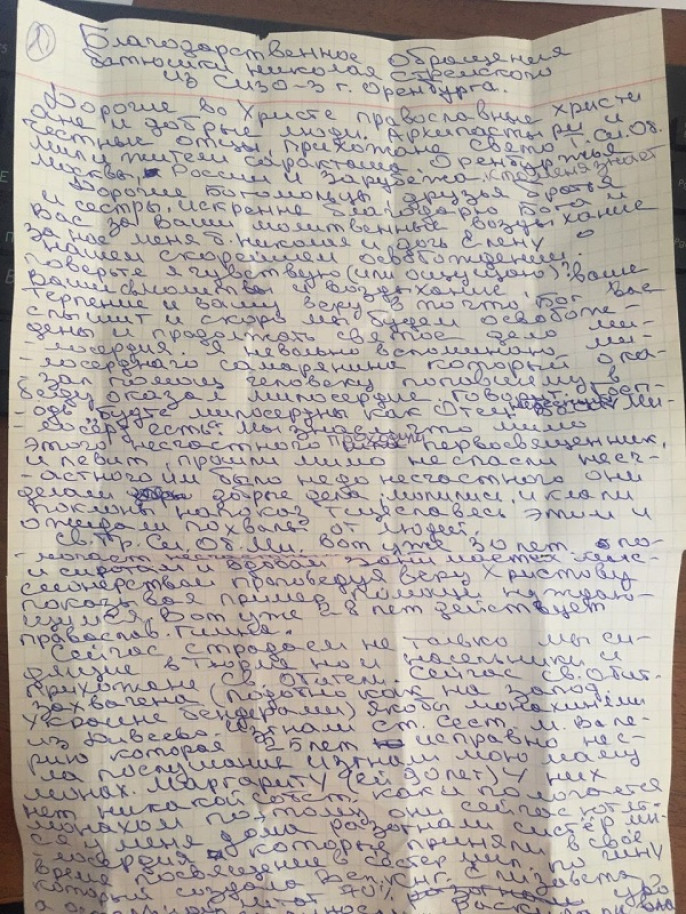 1)
Благодарственное обращения
батюшки Николая Стремского
из СИЗО-3 г. Оренбурга.
Дорогие во Христе православные христи
ане и добрые люди. Архипастыри и
честные отцы, прихожане Свято Т. Си. Об.
мили жители Саракташа, Оренбуржья
Москвы, России и Зарубежа, кто меня знает
Дорогие богомольцы, друзья братья
и сестры, искренне благодарю Бога и
Вас за Ваши молитвенные воздыхание
за нас меня б. Николая и дочь Елену о
нашем скорейшем освобождении.
Поверьте я чувствую (или ощущаю) ваше
Ваши молитвы и воздыхание,
терпение и вашу веру в то что Бог вас
слышит и скоро мы будем освобож-
дены и продолжать святое дело ми-
-лосердия. Я невольно вспоминаю ми-
-лосердного самарянина который ока-
-зал помощь человеку попавшему в
беду, оказал милосердие. Говорит Госп-
-одь будте милосерды как Отец Ми-
-лосерд есть. Мы знаем что мимо
этого несчастного проходили первосвященник,
и левит, прошли мимо не спасли несч-
-астного им было недо несчастного они
делали добрые дела, молились и клали
поклоны на показ тщеславясь этим и
ожидали похвалы от людей.
Св. Тр. Си. Об. Ми. вот уже 30 лет по-
и сиротам и вдовам занимается мис-
сионерством проповедуя веру Христову
показывая пример помощи нуждаю-
щимся, Вот уже 28 лет действует
православ. Гимна.
Сейчас страдаем не только мы си-
дящие в тюрьме но и насельники и
прихожане св. Обители. Сейчас св. Обит.
захвачена (подобно как на запад.
Украине бендерами) якобы монахинями
из Дивеево. Изгнали ст. сест. м. Вале-
рию которая 25 лет исправно нес-
ла послушание изгнали мою маму
монах. Маргариту (ей 90 лет) у них
нет никакой собст. как и полагается
монахом поэтому они сейчас ютят-
ся у меня дома разогнали сестёр ми-
-лосердия которые приняли в своё
время посвящение в сестер мил. по чину
который создала Вел. Кнг. Елизавета